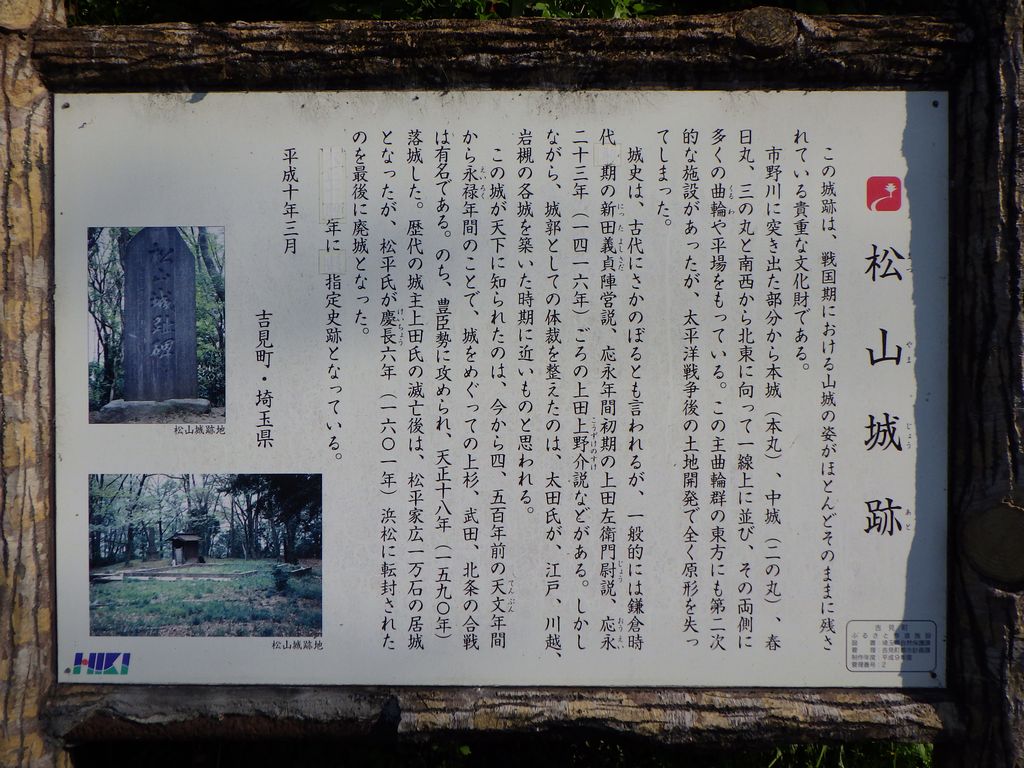 松山城跡
やま じょう あと
この城跡は、戦国期における山城の姿がほとんどそのままに残さ
れている貴重な文化財である。
市野川に突き出た部分から本城（本丸）、中城（二の丸）、春
日丸、三の丸と南西から北東に向って一線上に並び、その両側に
多くの曲輪や平場をもっている。この主曲輪群の東方にも第二次
的な施設があったが、太平洋戦争後の土地開発で全く原形を失っ
てしまった。
城史は、古代にさかのぼるとも言われるが、一般的には鎌倉時
代 期の新田義貞陣営説、応永年間初期の上田左衛門尉説、応永
二十三年（一四一六年）ごろの上田上野介説などがある。しかし
ながら、城郭としての体裁を整えたのは、太田氏が、江戸、川越、
岩槻の各城を築いた時期に近いものと思われる。
この城が天下に知られたのは、今から四、五百年前の天文年間
から永禄年間のことで、城をめぐっての上杉、武田、北条の合戦
は有名である。のち、豊臣勢に攻められ、天正十八年（一五九〇年）
落城した。歴代の城主上田氏の滅亡後は、松平家広一万石の居城
となったが、松平氏が慶長六年（一六〇一年）浜松に転封された
のを最後に廃城となった。
年に 指定史跡となっている。
平成十年三月
吉見町・埼玉県
松山城跡碑
松山城跡地
松山城跡地
HIKI
吉見町
ふるさと歩道施設
設置：埼玉県自然保護課
管理：吉見町都市計画課
制作年度：平成9年度
管理番号：2